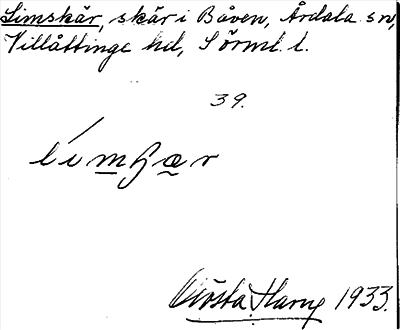 Limskär, skär i Båven, Årdala sn,
Villåttinge hd, Sörml. l.
39.
Gösta Harry 1933.